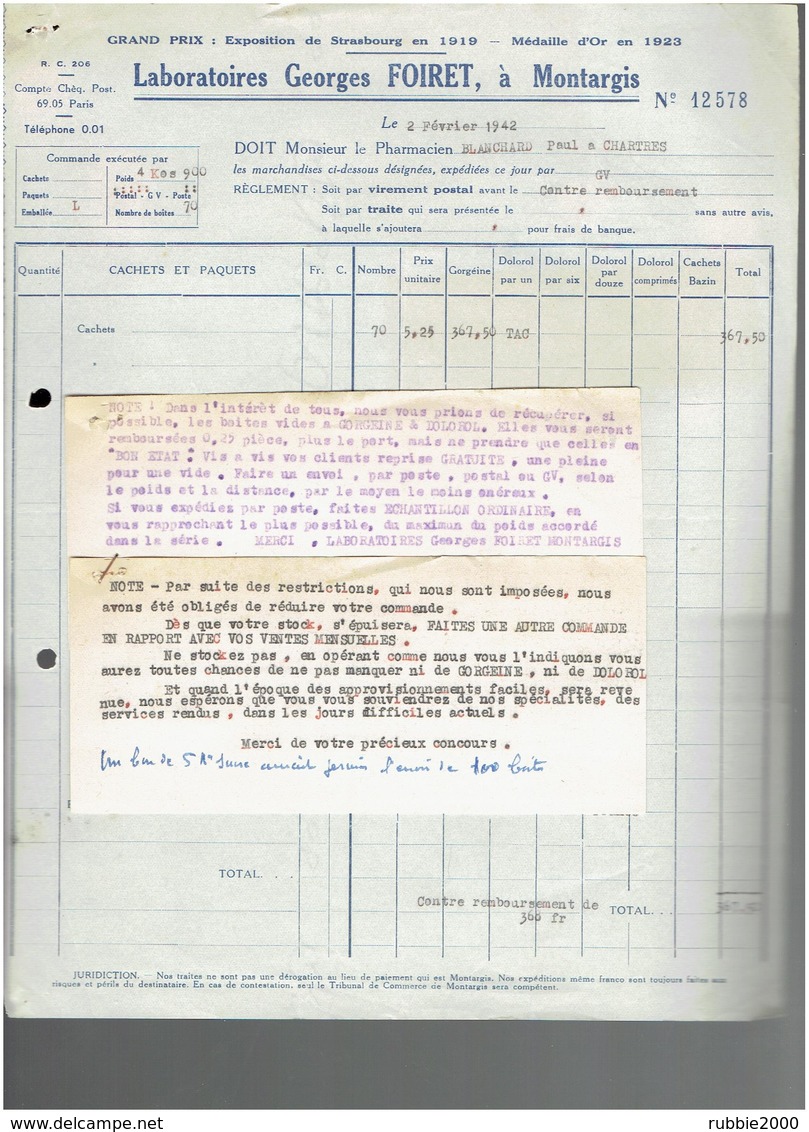 GRAND PRIX : Exposition de Strasbourg en 1919 — Médaille d'Or en 1923
R. C. 206
Compte Chèq. Post.
69.05 Paris
Téléphone 0.01
Laboratoires Georges FOIRET, à Montargis
N° 12578
Le 2 Février 1942
DOIT Monsieur le Pharmacien BLANCHARD Paul a CHARTRES
les marchandises ci-dessous désignées, expédiées ce jour par GV
RÈGLEMENT : Soit par virement postal avant le Contre remboursement
Soit par traite qui sera présentée le " sans autre avis,
à laquelle s'ajoutera " pour frais de banque.
Commande exécutée par
Cachets Poids 4 Kos 900
Paquets Postal - G V - Poste
Emballée L Nombre de boîtes 70
Quantité CACHETS ET PAQUETS Fr. C. Nombre Prix unitaire Gorgéine Dolorol par un Dolorol par six Dolorol par douze Dolorol comprimés Cachets Bazin Total
Cachets 70 5,25 367,50 TAC 367,50
NOTE : Dans l'intérèt de tous, nous vous prions de récupérer, si
possible, les boites vides a GORGEINE & DOLOROL. Elles vous seront
remboursées 0,25 pièce, plus le port, mais ne prendre que celles en
"BON ETAT". Vis a vis vos clients reprise GRATUITE , une pleine
pour une vide . Faire un envoi , par poste , postal ou GV, selon
le poids et la distance, par le moyen le moins onéreux .
Si vous expédiez par poste, faites ECHANTILLON ORDINAIRE, en
vous rapprochant le plus possible, du maximun du poids accordé
dans la série . MERCI , LABORATOIRES Georges FOIRET MONTARGIS
NOTE - Par suite des restrictions, qui nous sont imposées, nous
avons été obligés de réduire votre commande .
Dès que votre stock, s'épuisera, FAITES UNE AUTRE COMMANDE
EN RAPPORT AVEC VOS VENTES MENSUELLES .
Ne stockez pas , en opérant comme nous vous l'indiquons vous
aurez toutes chances de ne pas manquer ni de GORGEINE , ni de DOLOROL
Et quand l'époque des approvisionnements faciles, sera reve
nue, nous espérons que vous vous souviendrez de nos spécialités, des
services rendus , dans les jours difficiles actuels .
Merci de votre précieux concours .
Un bon de 5 K° sucre aurait permis l'envoi de 100 boites
TOTAL. . .
Contre remboursement de
368 fr
TOTAL. . . 367,50
JURIDICTION. — Nos traites ne sont pas une dérogation au lieu de paiement qui est Montargis. Nos expéditions même franco sont toujours faites aux
risques et périls du destinataire. En cas de contestation, seul le Tribunal de Commerce de Montargis sera compétent.
delcampe.net
rubbie2000